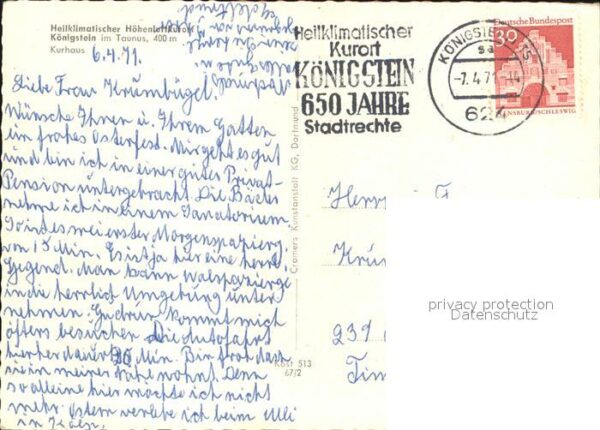 Heilklimatischer Höhenluftkurort
Königstein im Taunus, 400 m
Kurhaus
6.4.71.
Liebe Frau Krümbügel.
Wünsche Ihnen u. Ihrem Gatten
ein frohes Osterfest. Mir geht es gut
und bin ich in einer guten Privat-
Pension untergebracht. Die Bäder
nehme ich in einem Sanatorium
So ist es mein erster Morgenspazierg.
von 15 Min. Es ist ja hier eine herrl.
Gegend. Man kann Walspazierge
in die herrlich Umgebung unter
nehmen. Gudrun kommt mich
öfters besuchen. Die Autofahrt
hierher dauert 20 Min. Bin froh dass
sie in meiner Nähe wohnt. Denn
so alleine hier möchte ich nicht
mehr. Ostern verlebe ich beim Ulli
in
Cramers Kunstanstalt KG, Dortmund
Köst 513
67/2
Heilklimatischer
Kurort
KÖNIGSTEIN
650 JAHRE
Stadtrechte
KÖNIGSTEIN TS
sa
-7.4.71-14
624
Deutsche Bundespost
30
FLENSBURG/SCHLESWIG
Herrn
Krüm
239
privacy protection
Datenschutz